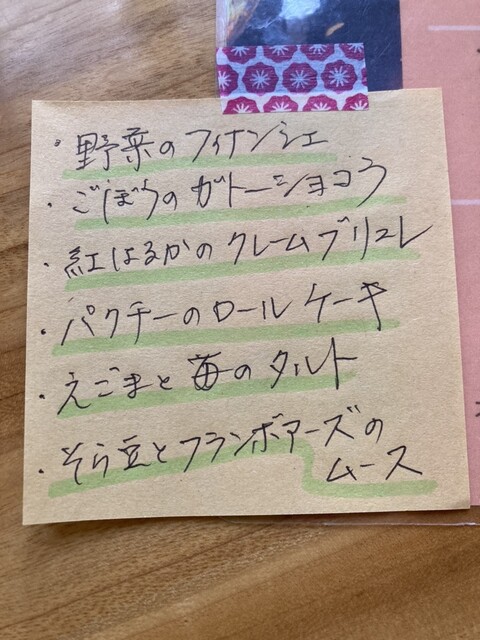 ・野菜のフィナンシェ
・ごぼうのガトーショコラ
・紅はるかのクレームブリュレ
・パクチーのロールケーキ
・えごまと苺のタルト
・そら豆とフランボアーズの
ムース